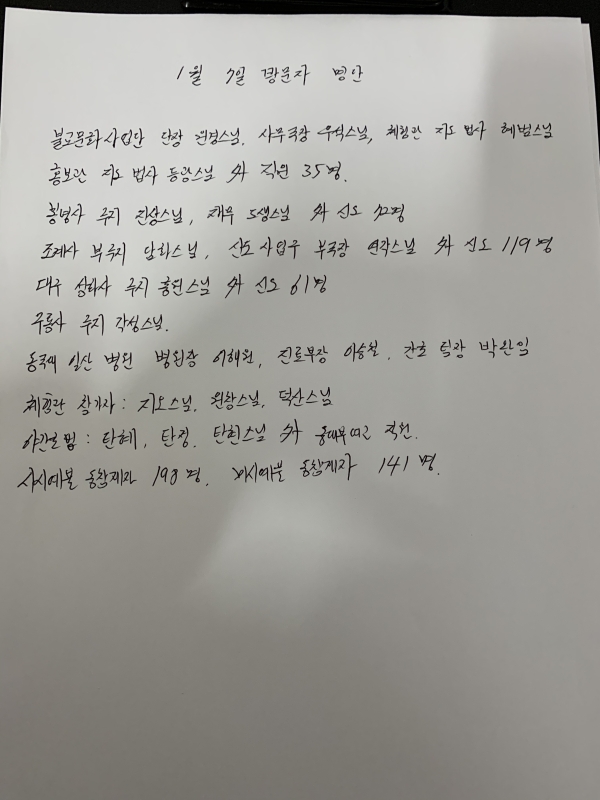 1월 7일 방문자 명안
불교문화사업단 단장 원경스님. 사무국장 우석스님, 체험관 지도 법사 혜범스님
홍보관 지도 법사 등광스님 外 직원 35명.
주지 진상스님, 재무 도생스님 外 신도 42명
조계사 부주지 담화스님, 신도 사업국 부국장 연각스님 外 신도 119명
대구 주지 홍진스님 外 신도 61명
구룡사 주지 각성스님.
동국대 일산 병원 병원장 이해원, 진료부장 이승철, 간호 팀장 박완임
체험관 참가자 : 지오스님, 원창스님, 덕산스님
야간 : 탄혜, 탄정, 탄현스님 外 직원.
사시예불 동참제자 198명. 동참제자 141명.